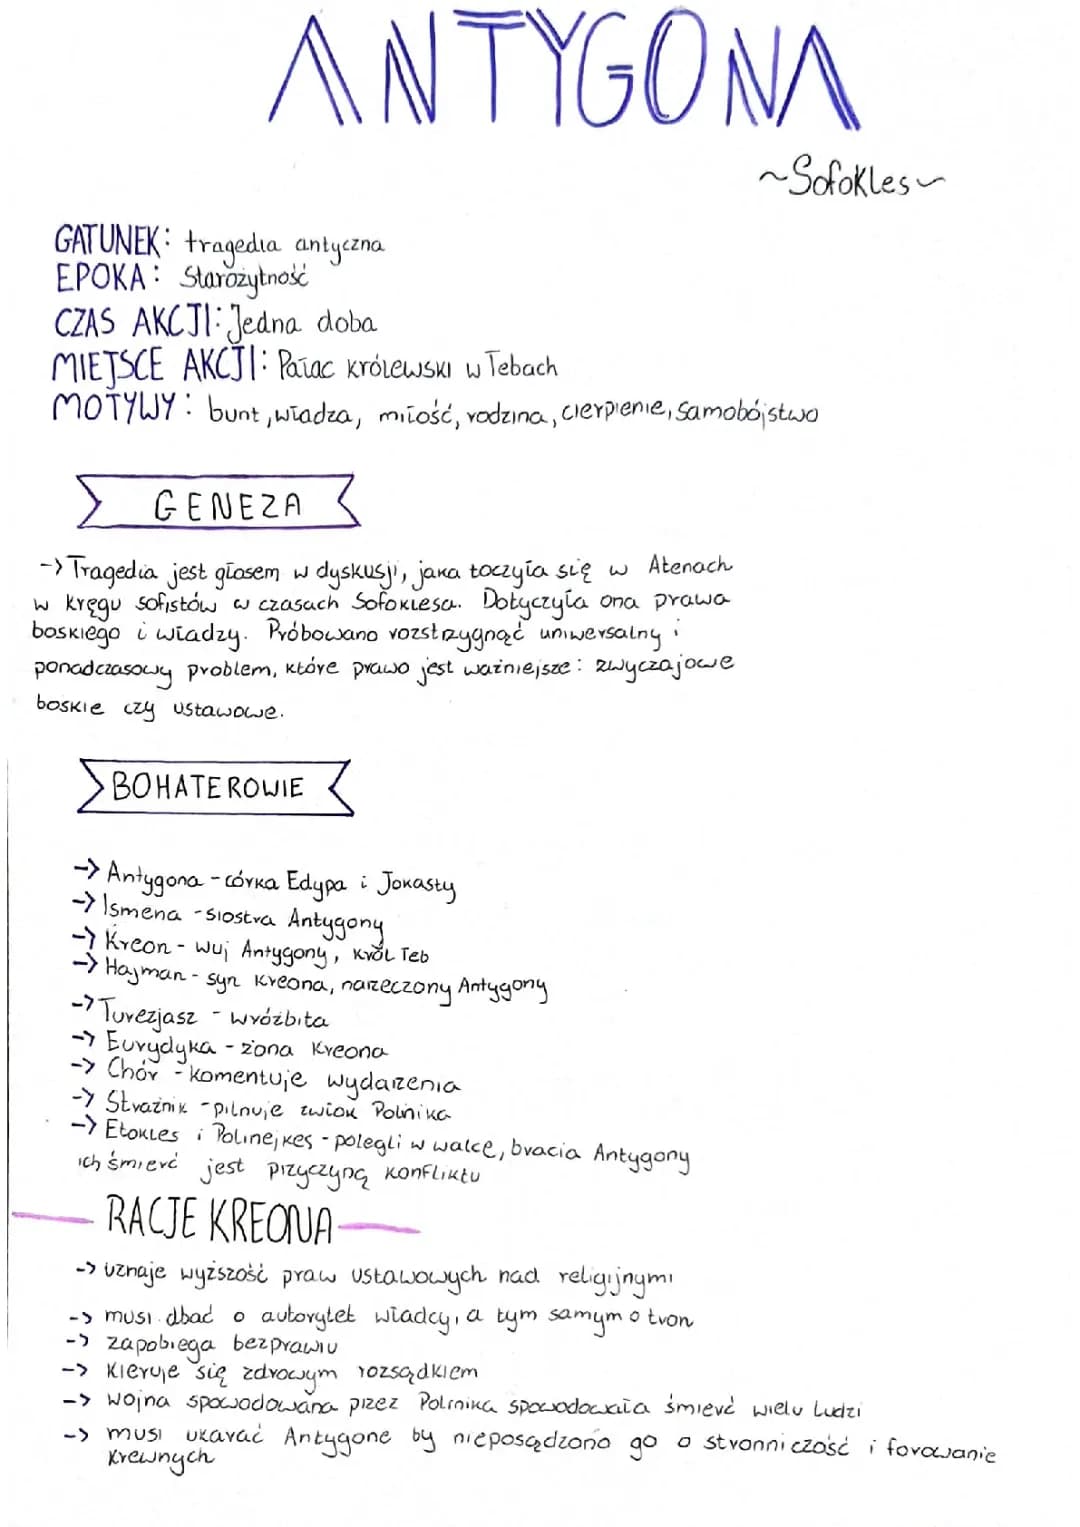 ANTYGONA
~Sofokles~
GATUNEK: tragedia antyczna
EPOKA: Starożytność
CZAS AKCJI: Jedna doba
MIEJSCE AKCJI: Pałac królewski w Tebach
MOTYWY: bunt, władza, miłość, rodzina, cierpienie, samobójstwo
GENEZA
-> Tragedia jest głosem w dyskusji, jaka toczyła się w Atenach
w kręgu sofistów w czasach Sofoklesa. Dotyczyła ona prawa
boskiego i władzy. Próbowano rozstrzygnąć uniwersalny i
ponadczasowy problem, które prawo jest ważniejsze: zwyczajowe
boskie czy ustawowe.
BOHATEROWIE
-> Antygona - córka Edypa i Jokasty
-> Ismena - siostra Antygony
-> Kreon - wuj Antygony, król Teb
-> Hajman - syn Kreona, narzeczony Antygony
-> Turezjasz - wróżbita
-> Eurydyka - żona Kreona
-> Chór - komentuje wydarzenia
-> Strażnik - pilnuje zwłok Polinika
-> Etokles i Polinejkes - polegli w walce, bracia Antygony
ich śmierć jest przyczyną konfliktu
RACJE KREONA
-> uznaje wyższość praw ustawowych nad religijnymi
-> musi dbać o autorytet władcy, a tym samym o tron
-> zapobiega bezprawiu
-> Kieruje się zdrowym rozsądkiem
-> Wojna spowodowana przez Polinika spowodowała śmierć wielu ludzi
-> musi ukarać Antygone by nieposądzono go o stronniczość i forowanie
krewnych